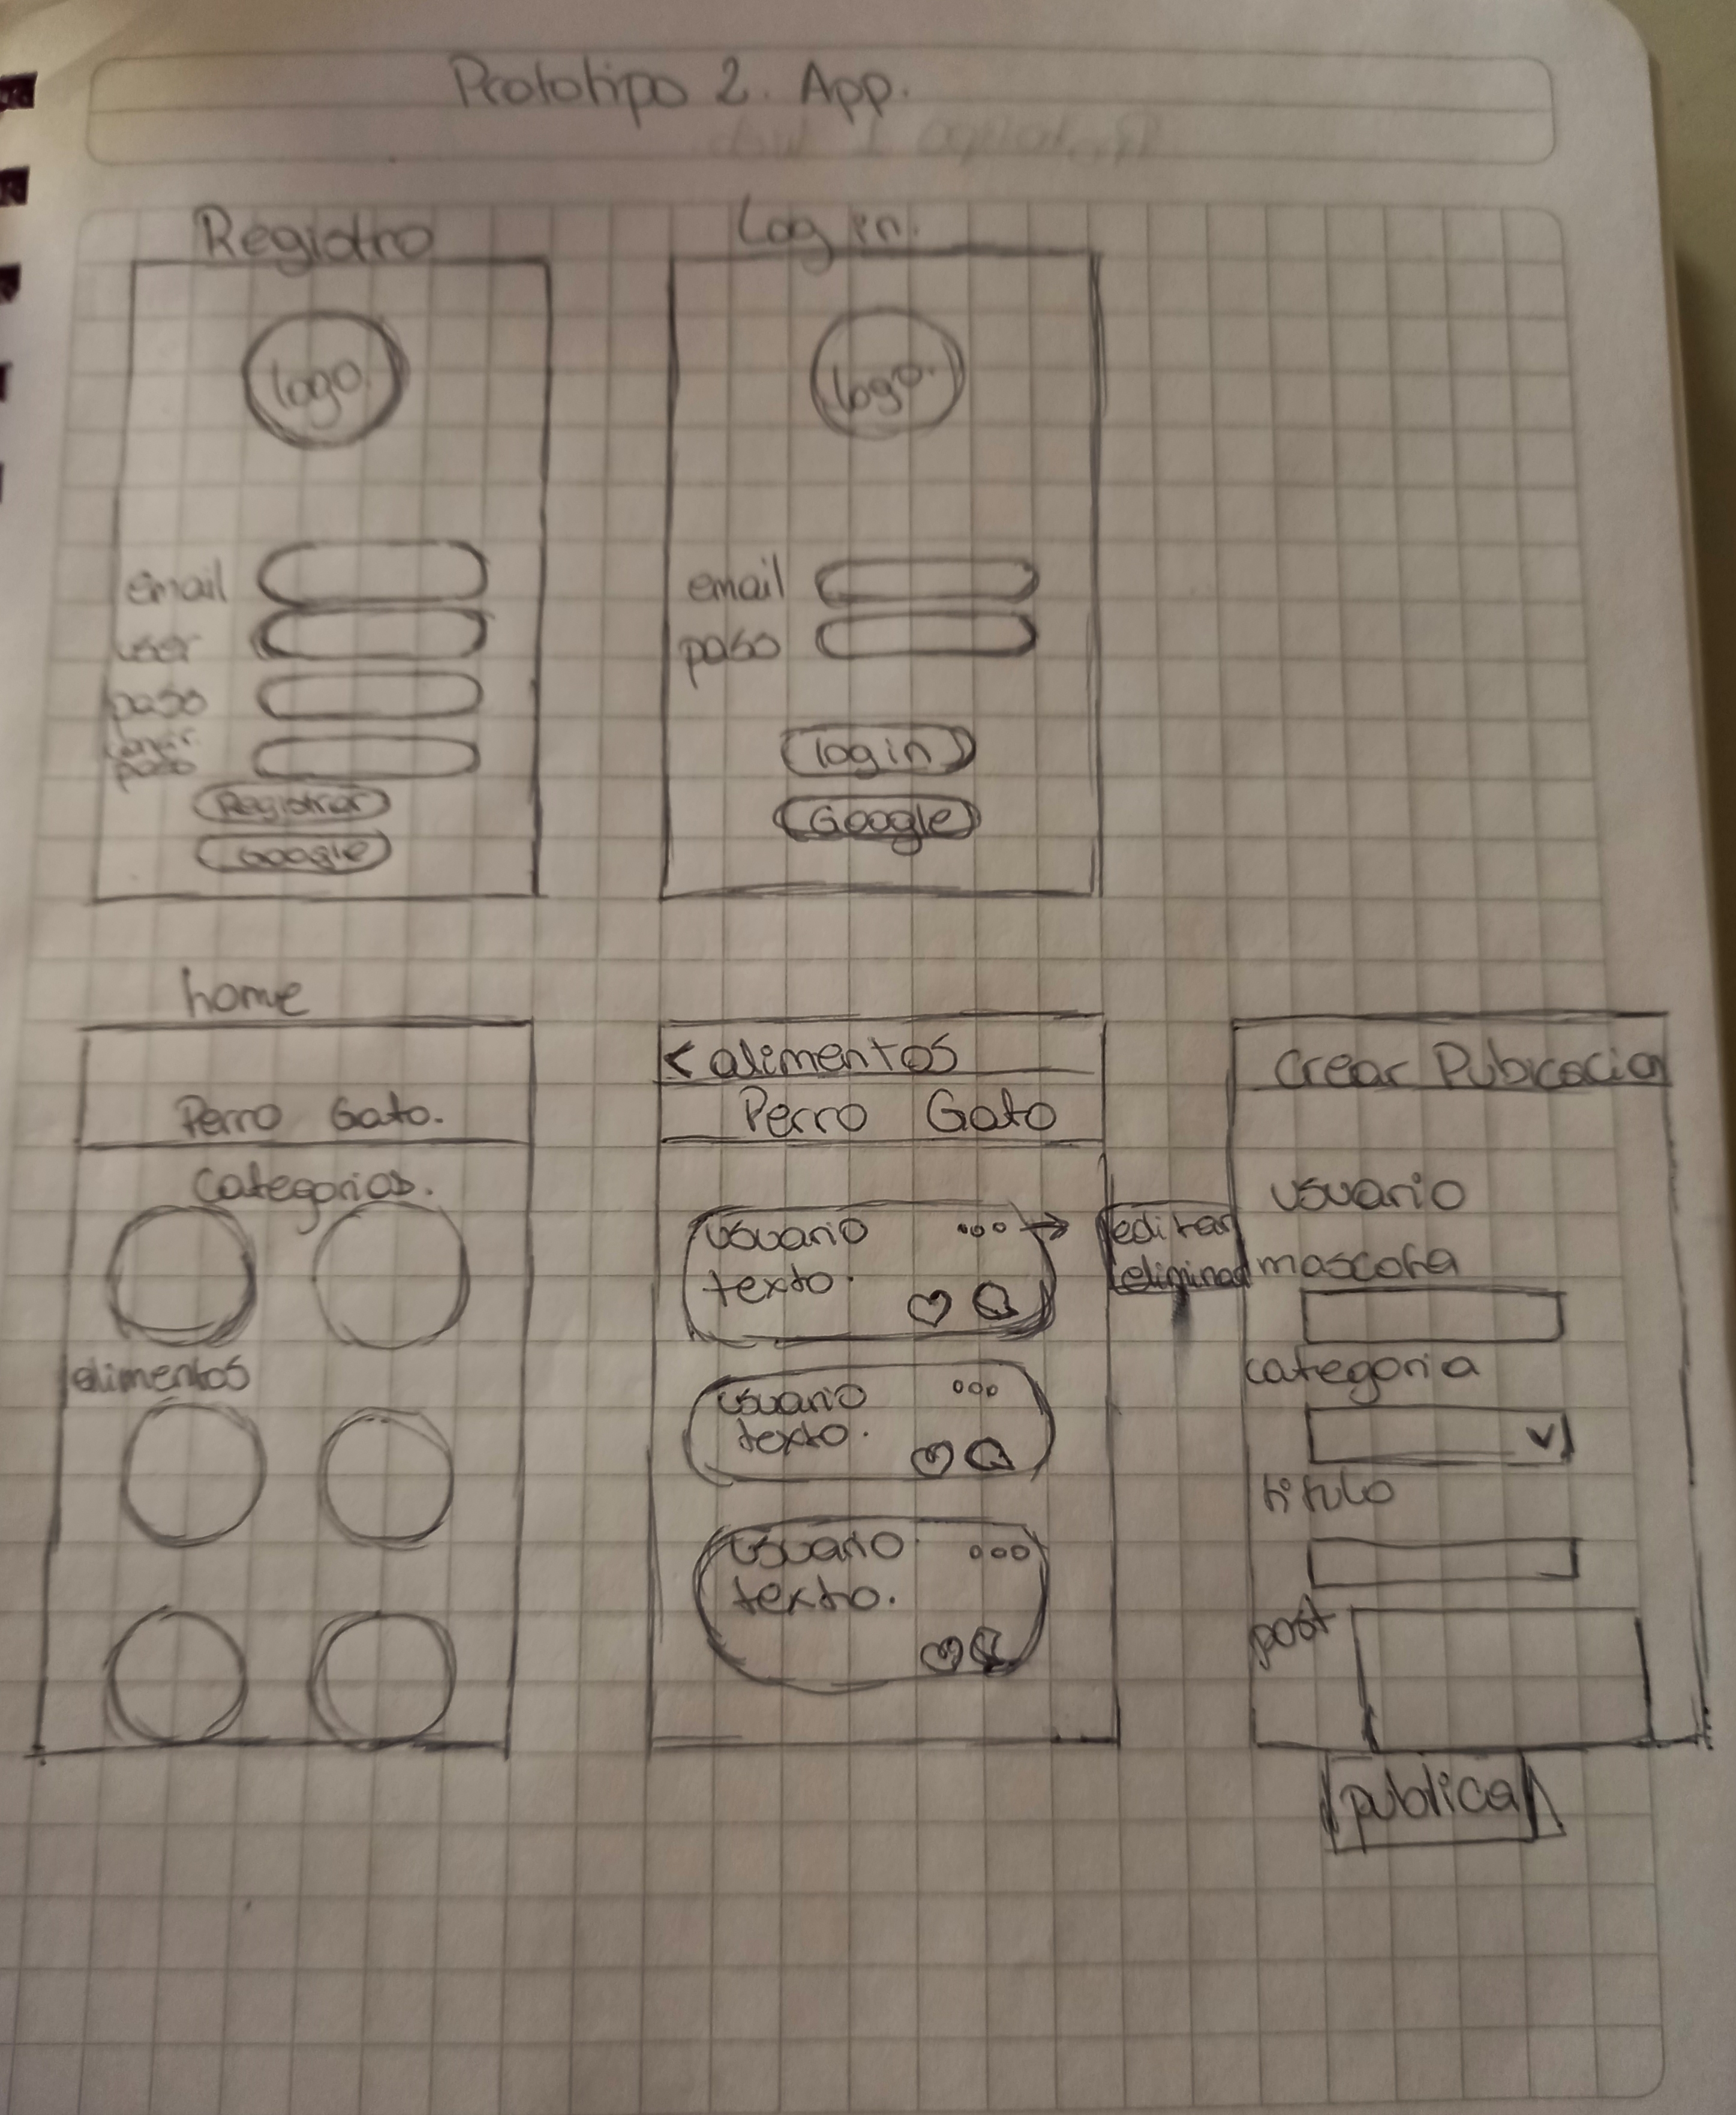 Prototipo 2. App.
Registro
logo.
email
user
pass
confir.
pass
Registrar
Google
Log in.
logo.
email
pass
login
Google
home
Perro Gato.
Categorias.
alimentos
< alimentos
Perro Gato
usuario ooo →
texto.
usuario ooo
texto.
usuario ooo
texto.
editar
eliminar
Crear Pubicacion
usuario
mascota
categoria
titulo
post
publicar